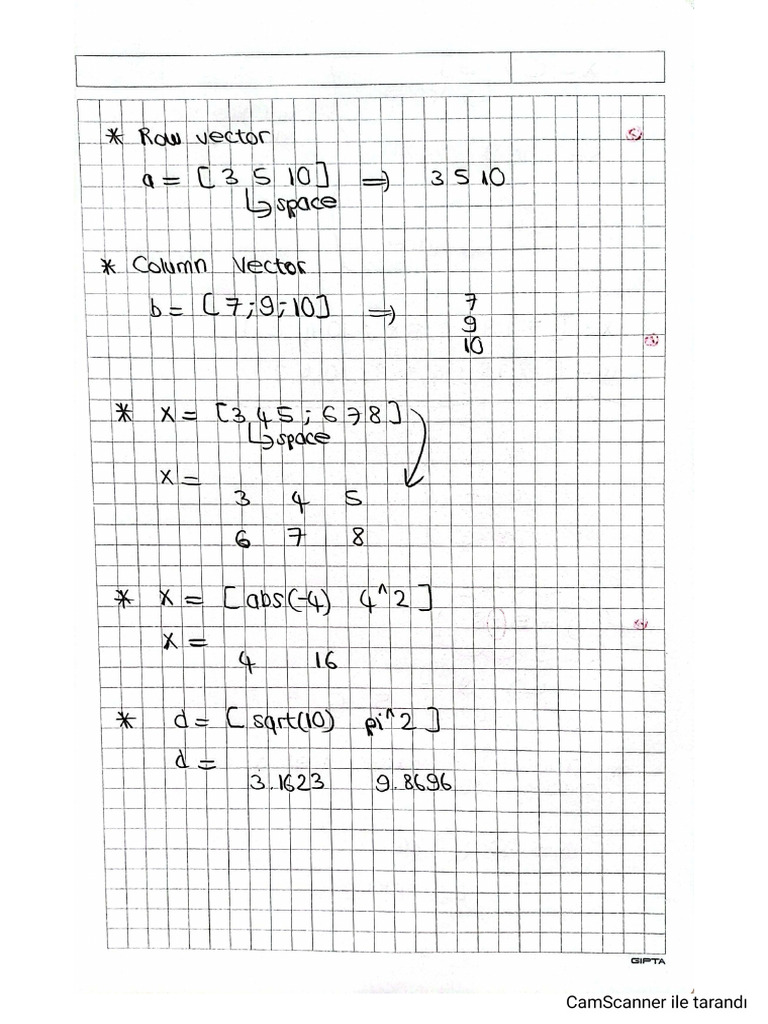 * Row vector
a = [ 3 5 10 ] => 3 5 10
↳ space
* Column Vector
b = [ 7 ; 9 ; 10 ] => 7
9
10
* x = [ 3 4 5 ; 6 7 8 ]
↳ space
x =
3 4 5
6 7 8
* x = [ abs(-4) 4^2 ]
x =
4 16
* d = [ sqrt(10) pi^2 ]
d =
3.1623 9.8696
GIPTA
CamScanner ile tarandı